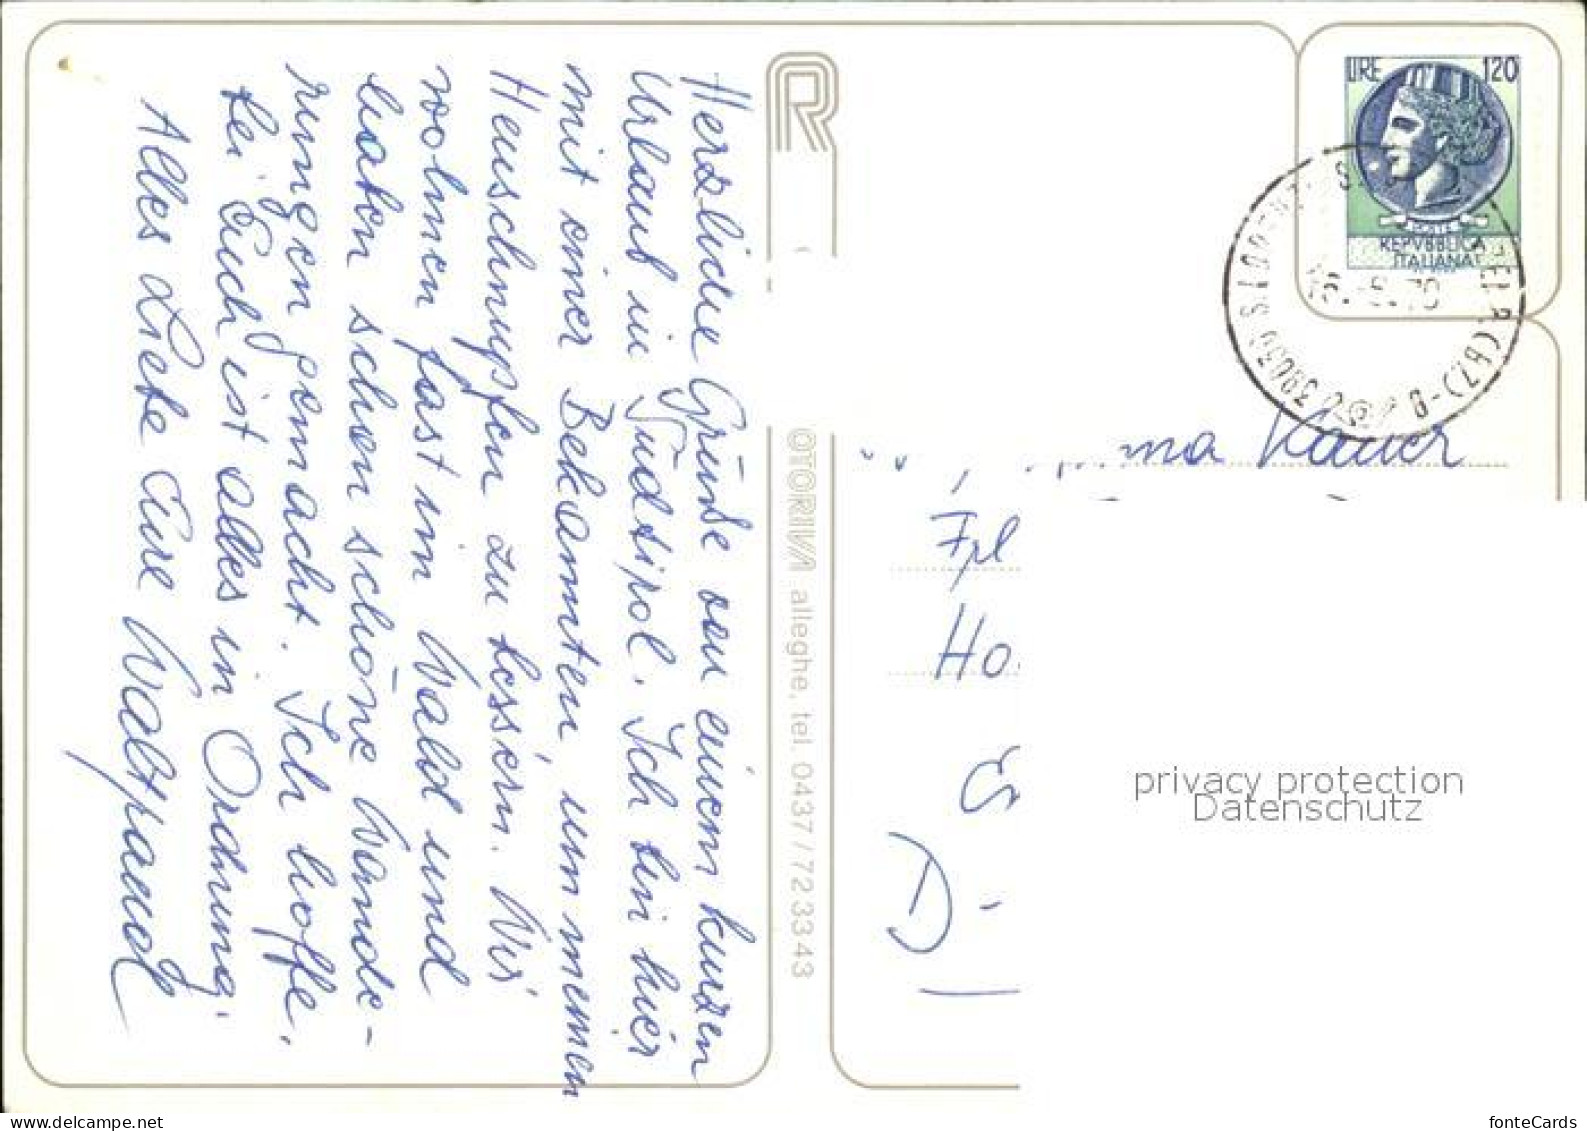 Herzliche Grüße von einem kurzen
Urlaub in Südtirol. Ich bin hier
mit einer Bekannten, um meinen
Heuschnupfen zu bessern. Wir
wohnen fast im Wald und
haben schon schöne Wande-
rungen gemacht. Ich hoffe,
bei Euch ist alles in Ordnung.
Alles Liebe Eure Waltraud
R
OTORIVA alleghe, tel. 0437 / 723343
LIRE 120
REPVBBLICA
ITALIANA
39030 (BZ) - B
ma Kauer
Ho
D-
privacy protection
Datenschutz
fonteCards